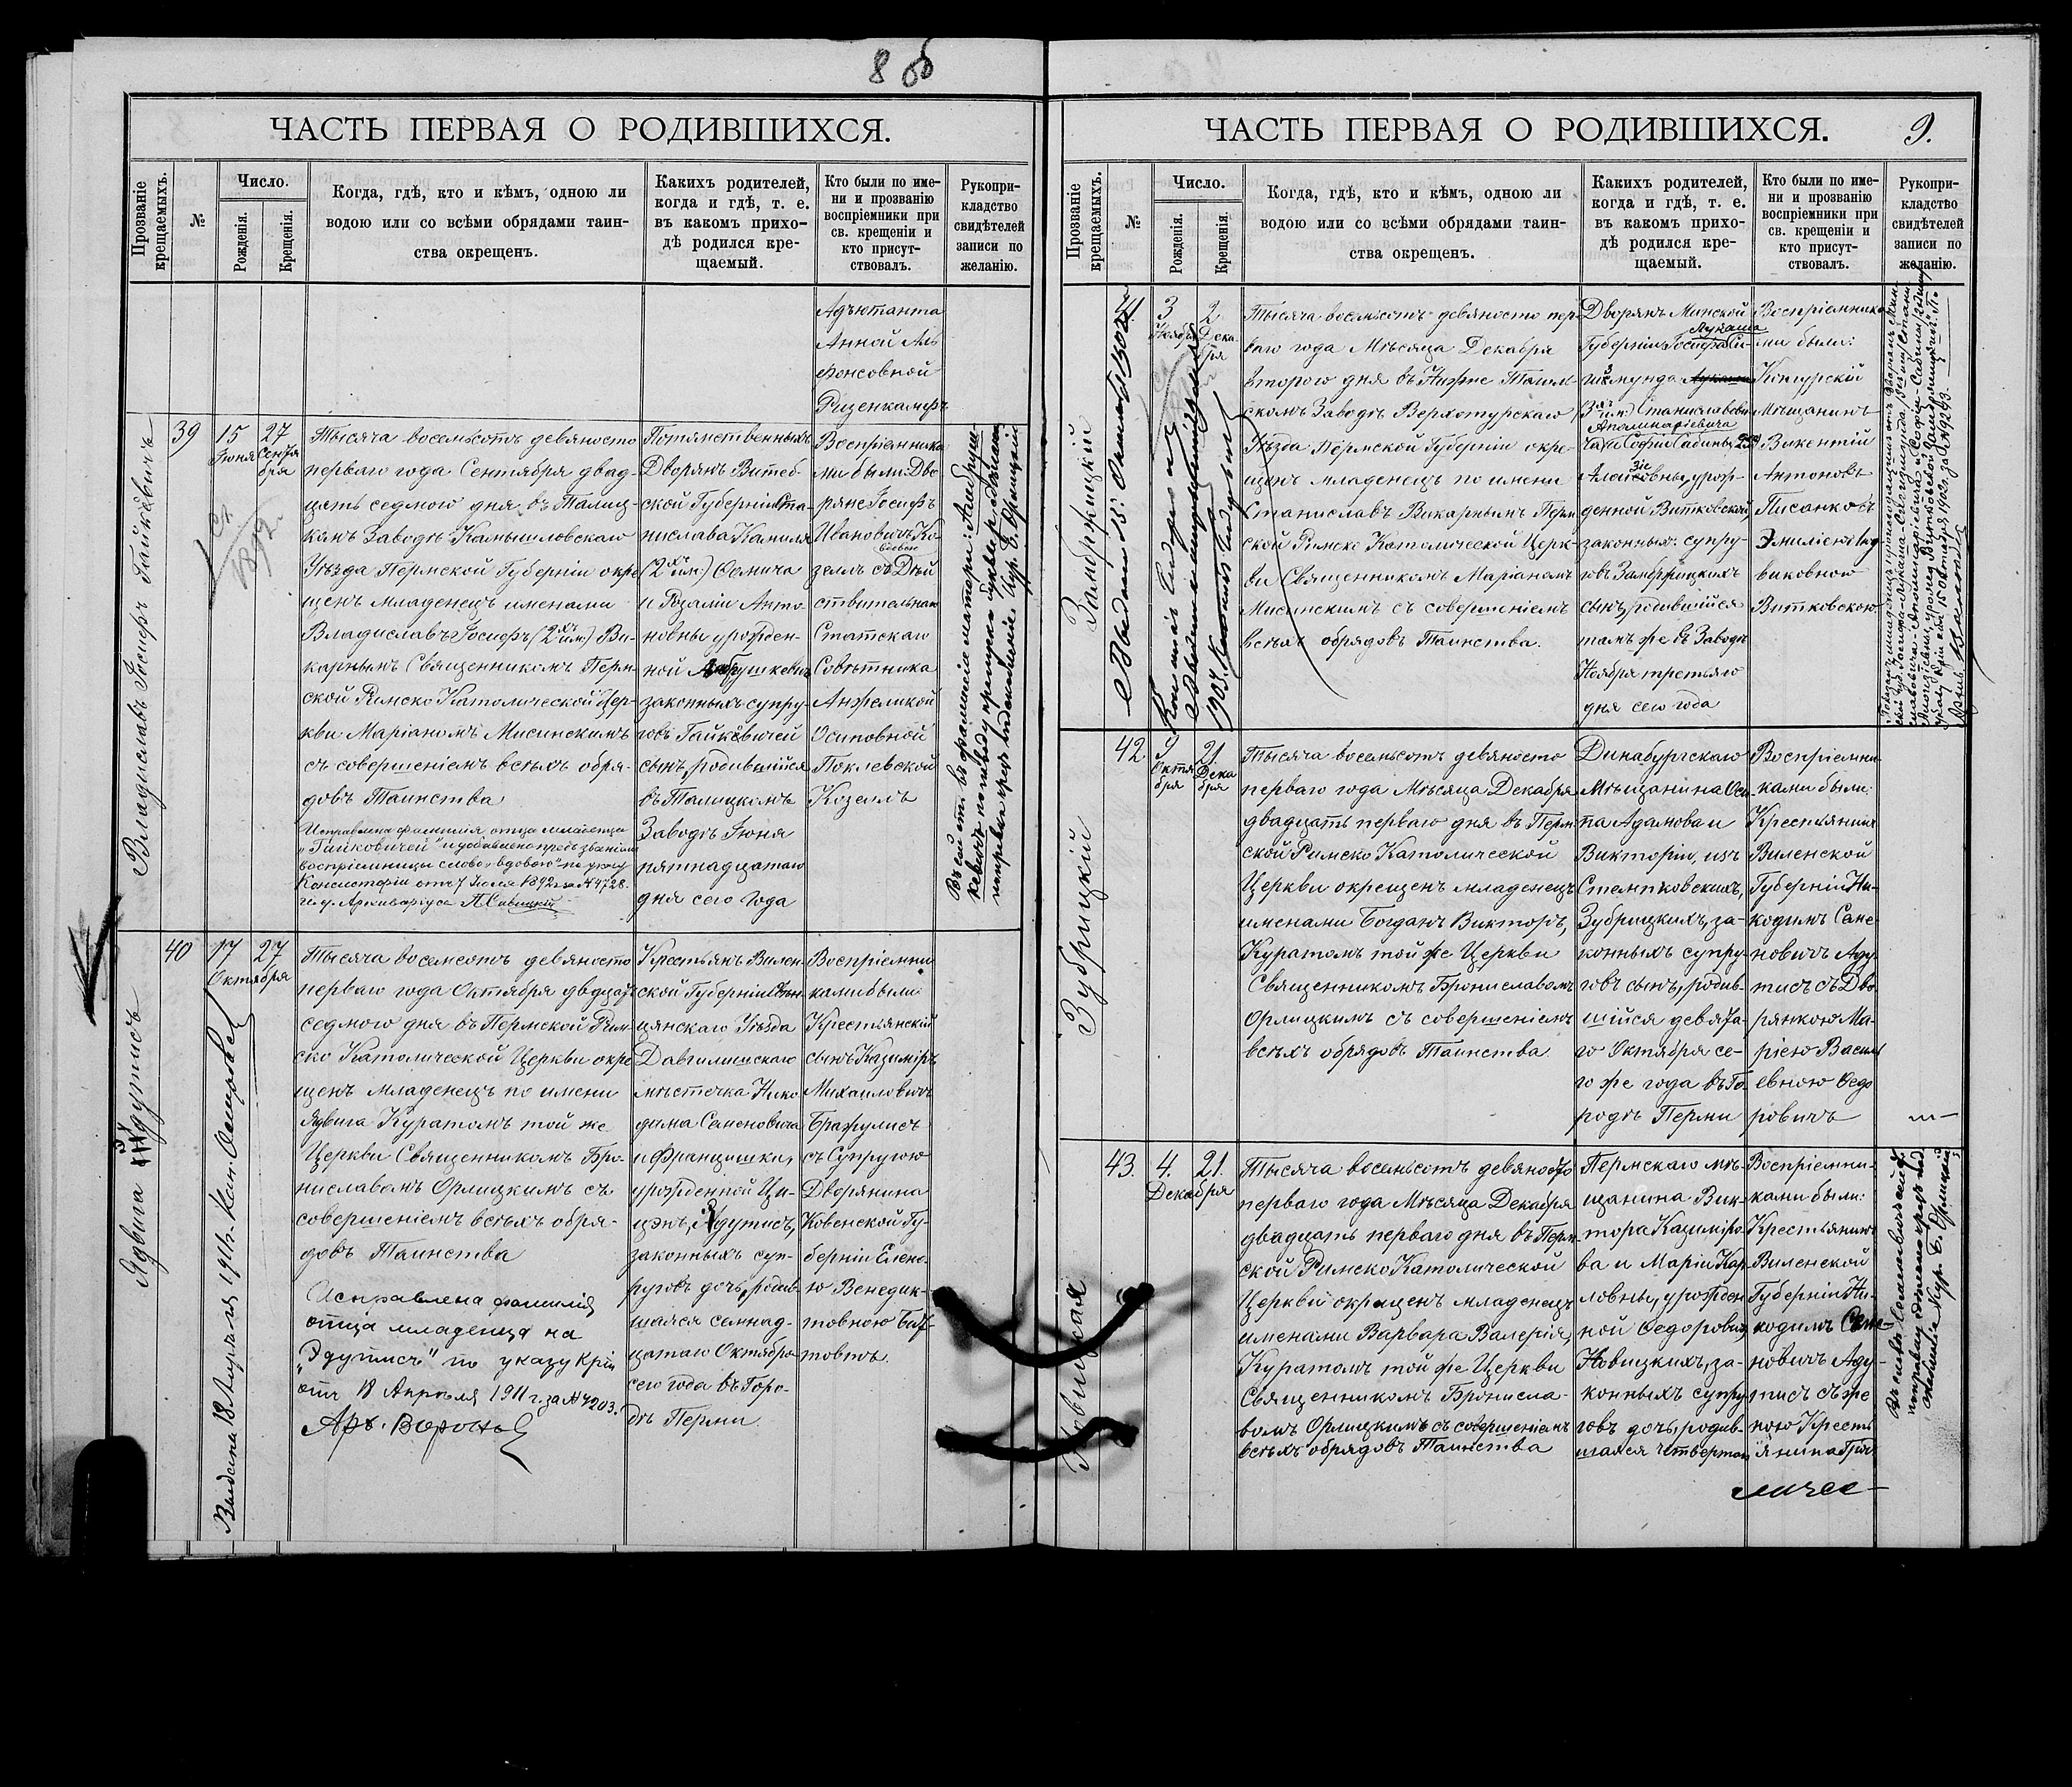 8 об
ЧАСТЬ ПЕРВАЯ О РОДИВШИХСЯ.
Прозваніе крещаемыхъ.
№
Число.
Рожденія.
Крещенія.
Когда, гдѣ, кто и кѣмъ, одною ли
водою или со всѣми обрядами таин-
ства окрещенъ.
Какихъ родителей,
когда и гдѣ, т. е.
въ какомъ прихо-
дѣ родился кре-
щаемый.
Кто были по име-
ни и прозванію
воспріемники при
св. крещеніи и
кто присут-
ствовалъ.
Рукопри-
кладство
свидѣтелей
записи по
желанію.
Адъютанта
Анной Аль
фонсовной
Ризенкампфъ
Владиславъ Іосифъ Гайкевичъ
39
15
Іюня
27
Сентя
бря
1892
Тысяча восемсотъ девяносто
перваго года Сентября двад-
цать седмого дня въ Талиц-
комъ Заводѣ Камышловскаго
Уѣзда Пермской Губерніи окре
щенъ младенецъ именами
Владиславъ Іосифъ (2хъ им.) Ви-
карнымъ Священникомъ Перм-
ской Римско Католической Цер-
кви Маріаномъ Мисинскимъ
съ совершеніемъ всѣхъ обря-
довъ Таинства
Исправлена фамилія отца младенца
„Гайковичей" и добавлено предъ званіем
воспріемницы слово „вдовою" по указу
Консисторіи отъ 7 Іюля 1892 г. за № 4728.
И. д. Архиваріуса П. Савицкій
Потомственныхъ
Дворянъ Витеб-
ской Губерніи Ста-
нислава Камиля
(2хъ им.) Осмича
и Розаліи Анто
новны урожден-
ной Амбрушкевичъ
законныхъ супру-
говъ Гайкевичей
сынъ, родившійся
въ Талицкомъ
Заводѣ Іюня
пятнадцатаго
дня сего года
Воспріемника
ми были: Дво
ряне Іосифъ
Ивановичъ Ко
вдовою
зеллъ съ Дѣй
ствительнаго
Статскаго
Совѣтника
Анжеликой
Осиповной
Поклевской
Козеллъ
Ядвига Эдутисъ
40
17
27
Октября
Тысяча восемсотъ девяносто
перваго года Октября двадцать
седмого дня въ Пермской Рим
ско Католической Церкви окре
щенъ младенецъ по имени
Ядвига Куратомъ той же
Церкви Священникомъ Бро-
ниславомъ Орлицкимъ съ
совершеніемъ всѣхъ обря-
довъ Таинства
Исправлена фамилія
отца младенца на
„Эдутисъ" по указу Кріи
отъ 18 Апрѣля 1911 г. за № 4203.
Крестьянъ Вилен-
ской Губерніи Свен
цянскаго Уѣзда
Давгилишскаго
мѣстечка Нико
дима Семеновича
и Францишки,
урожденной Ци-
цэнъ, Эдутисъ,
законныхъ суп-
руговъ дочь, родив
шаяся семнад-
цатаго Октября
сего года въ Горо-
дѣ Перми.
Воспріемни
ками были
Крестьянскій
сынъ Казиміръ
Михаиловичъ
Бражулисъ
съ Супругою
Дворянина
Ковенской Гу-
берніи Елено-
ю Венедик-
товною Бит-
товтъ.
9.
ЧАСТЬ ПЕРВАЯ О РОДИВШИХСЯ.
Прозваніе крещаемыхъ.
№
Число.
Рожденія.
Крещенія.
Когда, гдѣ, кто и кѣмъ, одною ли
водою или со всѣми обрядами таин-
ства окрещенъ.
Какихъ родителей,
когда и гдѣ, т. е.
въ какомъ прихо-
дѣ родился кре-
щаемый.
Кто были по име-
ни и прозванію
воспріемники при
св. крещеніи и
кто присут-
ствовалъ.
Рукопри-
кладство
свидѣтелей
записи по
желанію.
Замбржицкій
41
3
Ноября
2
Дека-
бря
Тысяча восемьсотъ девяносто пер
ваго года Мѣсяца Декабря
второго дня въ Нижне Тагил-
скомъ Заводѣ Верхотурскаго
Уѣзда Пермской Губерніи окре-
щенъ младенецъ по имени
Станиславъ Викарнымъ Перм
ской Римско Католической Церк-
ви Священникомъ Маріаномъ
Мисинскимъ съ совершеніемъ
всѣхъ обрядовъ Таинства.
Дворянъ Минской
Лукаша
Губерніи Іосифа Си-
(3хъ им.) Станиславови
Аполинаріевича
ча и Софіи Сабины
денной Витковской,
законныхъ супру-
говъ Замбржицкихъ
сынъ, родившійся
тамъ же въ Заводѣ
Ноября третьяго
дня сего года
Воспріемника
ми были:
Кунгурскій
Мѣщанинъ
Викентій
Антоновъ
Писанко съ
Эмиліею Люд-
виковною
Витковскою
Зубрицкій
42
9
Октя
бря
21
Дека
бря
Тысяча восемьсотъ девяносто
перваго года Мѣсяца Декабря
двадцать перваго дня въ Перм
ской Римско Католической
Церкви окрещенъ младенецъ
именами Богданъ Викторъ,
Куратомъ той же Церкви
Священникомъ Брониславомъ
Орлицкимъ съ совершеніемъ
всѣхъ обрядовъ Таинства
Динабургскаго
Мѣщанина Оси-
па Адамова и
Викторіи, изъ
Стемпковскихъ,
Зубрицкихъ, за-
конныхъ супру-
говъ сынъ, родив-
шійся девята-
го Октября се-
го же года въ Го-
родѣ Перми
Воспріемни
ками были:
Крестьянинъ
Виленской
Губерніи Ни-
кодимъ Семе
новичъ Аду
тисъ съ Дво
рянкою Ма-
ріею Василь
евною Федо
ровичъ
Новицкая
43.
4.
21.
Декабря
Тысяча восемьсотъ девяносто
перваго года Мѣсяца Декабря
двадцать перваго дня въ Перм-
ской Римско Католической
Церкви окрещенъ младенецъ
именами Варвара Валерія,
Куратомъ той же Церкви
Священникомъ Бронисла-
вомъ Орлицкимъ съ совершеніемъ
всѣхъ обрядовъ Таинства
Пермскаго мѣ-
щанина Вик-
тора Казиміро-
ва и Маріи Кар
ловны, урожден
ной Федоровичъ
Новицкихъ, за-
конныхъ супру-
говъ дочь, родив-
шаяся четвертаго
Воспріемни-
ками были:
Крестьянинъ
Виленской
Губерніи Ни-
кодимъ Семе-
новичъ Аду-
тисъ съ же
ною Кресть